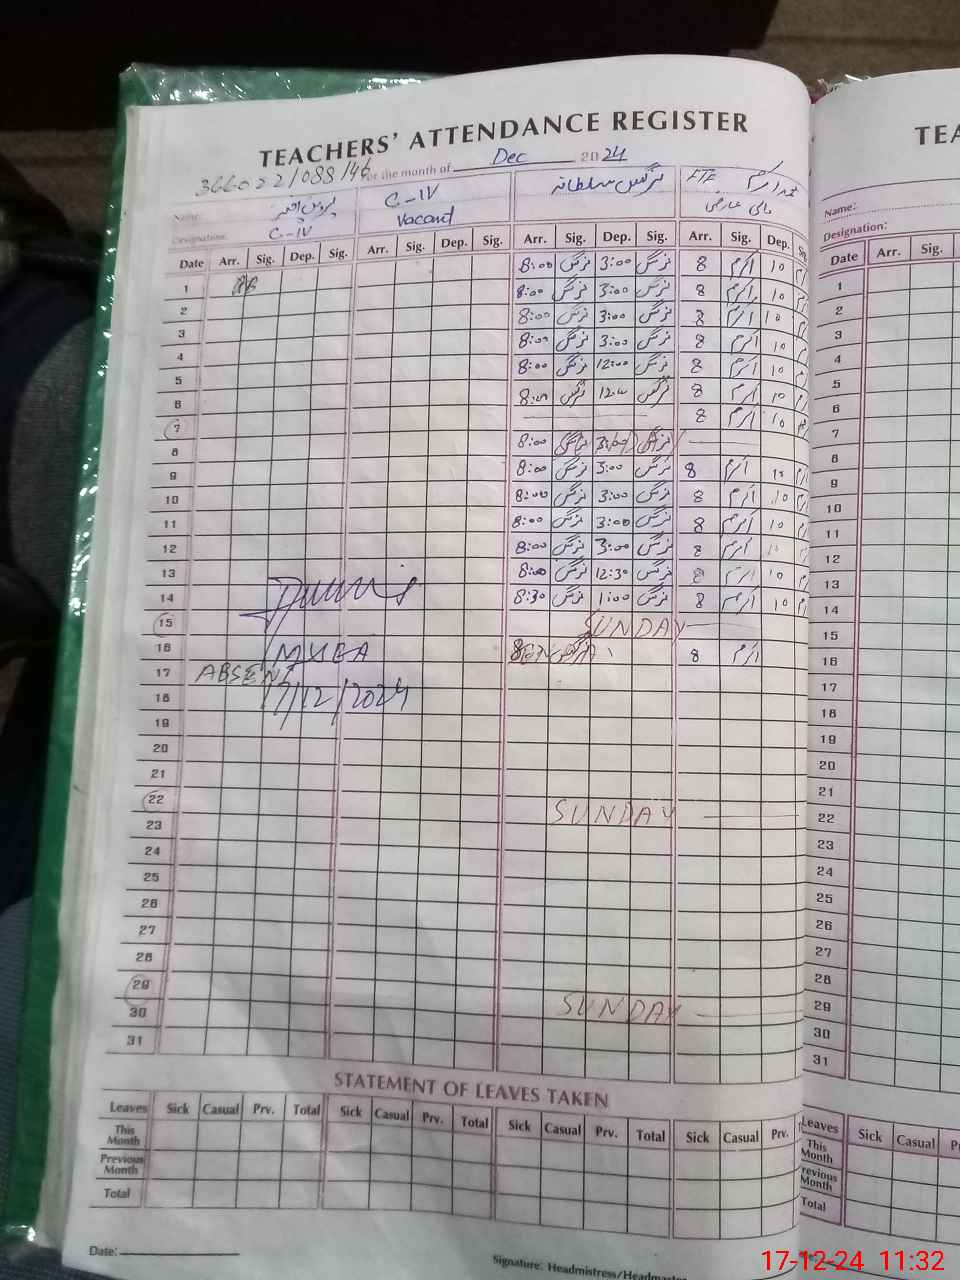 TEACHERS' ATTENDANCE REGISTER
for the month of Dec 2024
Name: C-IV نرگس سلطانہ محمد اکرم
Designation: C-IV Vacant
Date Arr. Sig. Dep. Sig. Arr. Sig. Dep. Sig. Arr. Sig. Dep. Sig. Arr. Sig. Dep.
1 8:00 نرگس 3:00 نرگس 8 اکرم 10
2 8:00 نرگس 3:00 نرگس 8 اکرم 10
3 8:00 نرگس 3:00 نرگس 8 اکرم 10
4 8:00 نرگس 3:00 نرگس 8 اکرم 10
5 8:00 نرگس 12:00 نرگس 8 اکرم 10
6 8:00 نرگس نرگس 8 اکرم 10
7 8 اکرم 10
8 8:00 نرگس
9 8:00 نرگس 3:00 نرگس 8 اکرم 10
10 8:00 نرگس 3:00 نرگس 8 اکرم 10
11 8:00 نرگس 3:00 نرگس 8 اکرم 10
12 8:00 نرگس 3:00 نرگس 8 اکرم 10
13 8:00 نرگس 12:30 نرگس 8 اکرم 10
14 8:30 نرگس 1:00 نرگس 8 اکرم 10
15 SUNDAY
16 8 اکرم
17 ABSENT
18 17/12/2024
19
20
21
22 SUNDAY
23
24
25
26
27
28
29 SUNDAY
30
31
STATEMENT OF LEAVES TAKEN
Leaves Sick Casual Prv. Total Sick Casual Prv. Total Sick Casual Prv. Total Sick Casual Prv.
This Month
Previous Month
Total
Date:
Signature: Headmistress/Headmaster
TEA
Name:
Designation:
Date Arr. Sig.
1
2
3
4
5
6
7
8
9
10
11
12
13
14
15
16
17
18
19
20
21
22
23
24
25
26
27
28
29
30
31
Leaves Sick Casual
This Month
Previous Month
Total
17-12-24 11:32